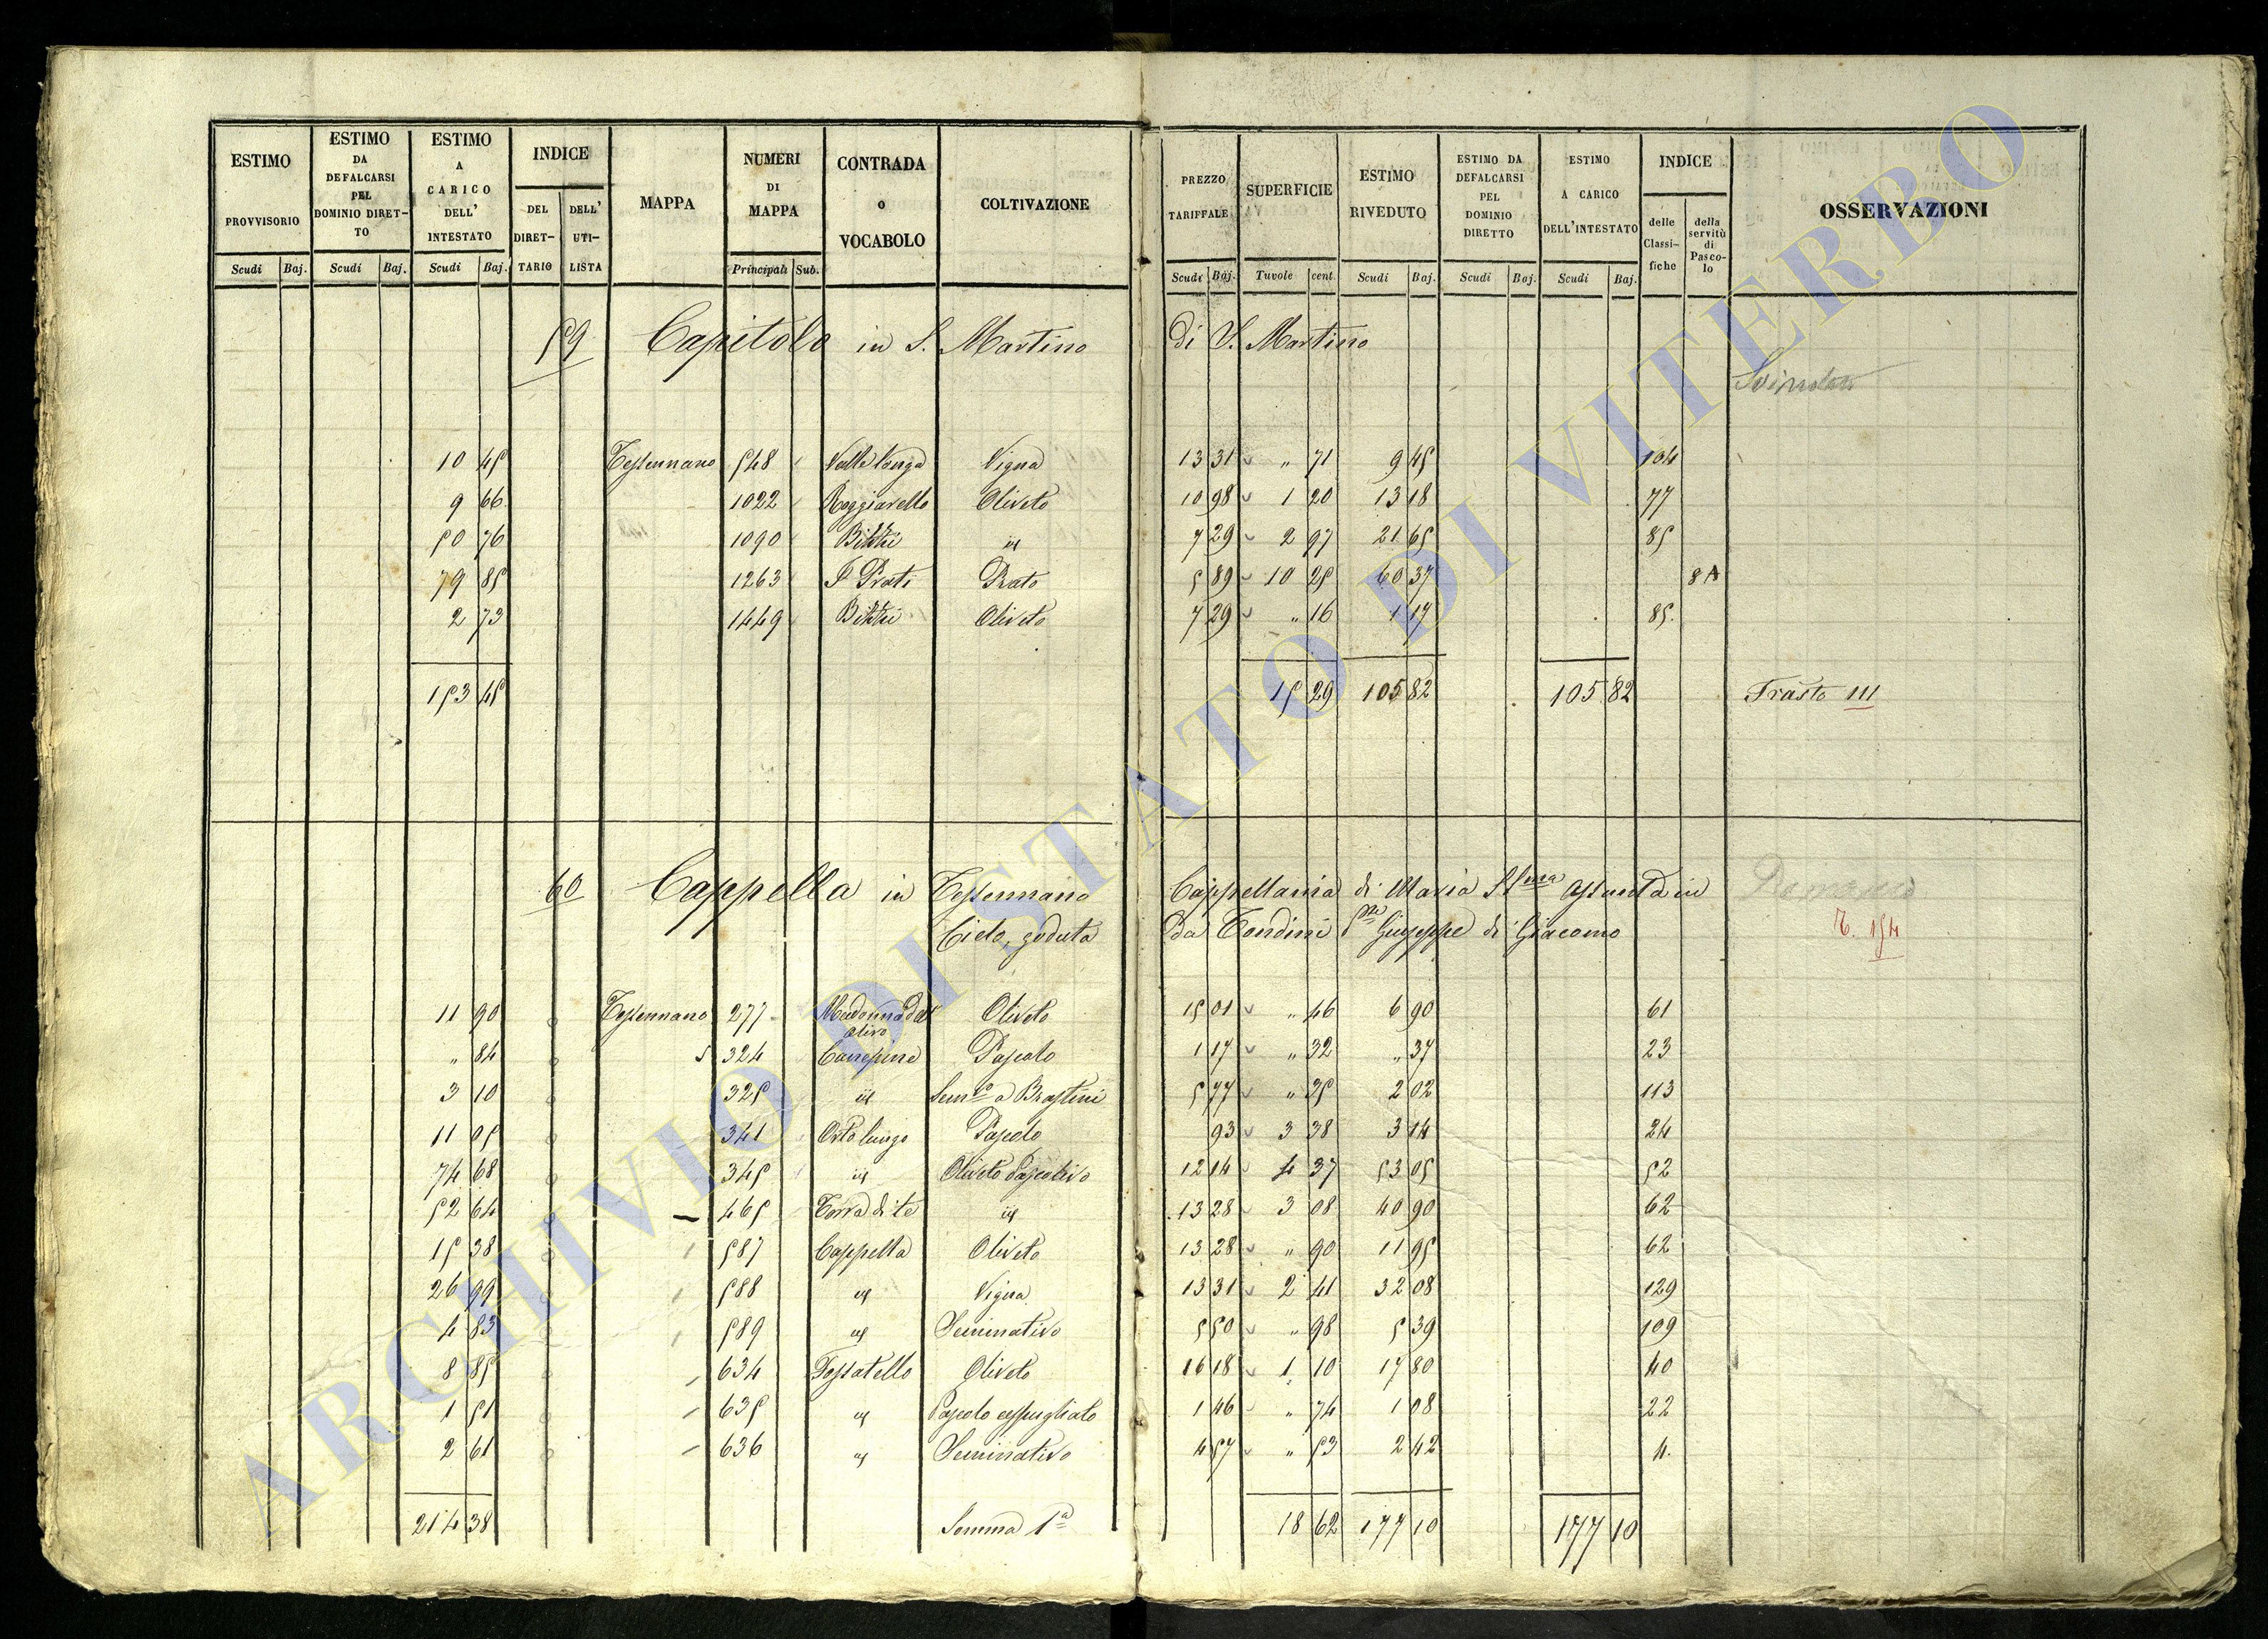 ESTIMO PROVVISORIO Scudi Baj. ESTIMO DA DEFALCARSI PEL DOMINIO DIRETTO Scudi Baj. ESTIMO A CARICO DELL' INTESTATO Scudi Baj. INDICE DEL DIRETTARIO DELL' UTILISTA MAPPA NUMERI DI MAPPA Principali Sub. CONTRADA o VOCABOLO COLTIVAZIONE PREZZO TARIFFALE Scudi Baj. SUPERFICIE Tavole cent. ESTIMO RIVEDUTO Scudi Baj. ESTIMO DA DEFALCARSI PEL DOMINIO DIRETTO Scudi Baj. ESTIMO A CARICO DELL'INTESTATO Scudi Baj. INDICE delle Classifiche della servitù di Pascolo OSSERVAZIONI
59 Capitolo in S. Martino di S. Martino
10 45 Tessennano 548 Valle longa Vigna 13 31 " 71 9 45 104
9 66 1022 Roggiarello Oliveto 10 98 1 20 13 18 77
50 76 1090 id 7 29 2 97 21 65 85
79 85 1263 I Prati Prato 5 89 10 25 60 37 8 A
2 73 1449 Oliveto 7 29 " 16 1 17 85.
153 45 15 29 105 82 105 82 Trasto 111
60 Cappella in Tessennano Cappellania di Maria SSma Assunta in
Cielo, goduta da Tondini Giuseppe di Giacomo T. 154
11 90 Tessennano 277 Madonna dell' olivo Oliveto 15 01 " 46 6 90 61
" 84 324 Canepine Pascolo 1 17 " 32 " 37 23
3 10 325 id Semo a Brastini 5 77 " 35 2 02 113
11 05 341 Orto lungo Pascolo 93 3 38 3 14 24
74 68 345 id Oliveto Pascolivo 12 14 4 37 53 05 52
52 64 465 Torra di te id 13 28 3 08 40 90 62
15 38 587 Cappella Oliveto 13 28 " 90 11 95 62
26 99 588 id Vigna 13 31 2 41 32 08 129
4 83 589 id Seminativo 5 50 " 98 5 39 109
8 85 634 Fossatello Oliveto 16 18 1 10 17 80 40
1 51 635 id Pascolo cespugliato 1 46 " 74 1 08 22
2 61 636 id Seminativo 4 57 " 53 2 42 4.
214 38 Somma 1a 18 62 177 10 177 10
ARCHIVIO DI STATO DI VITERBO